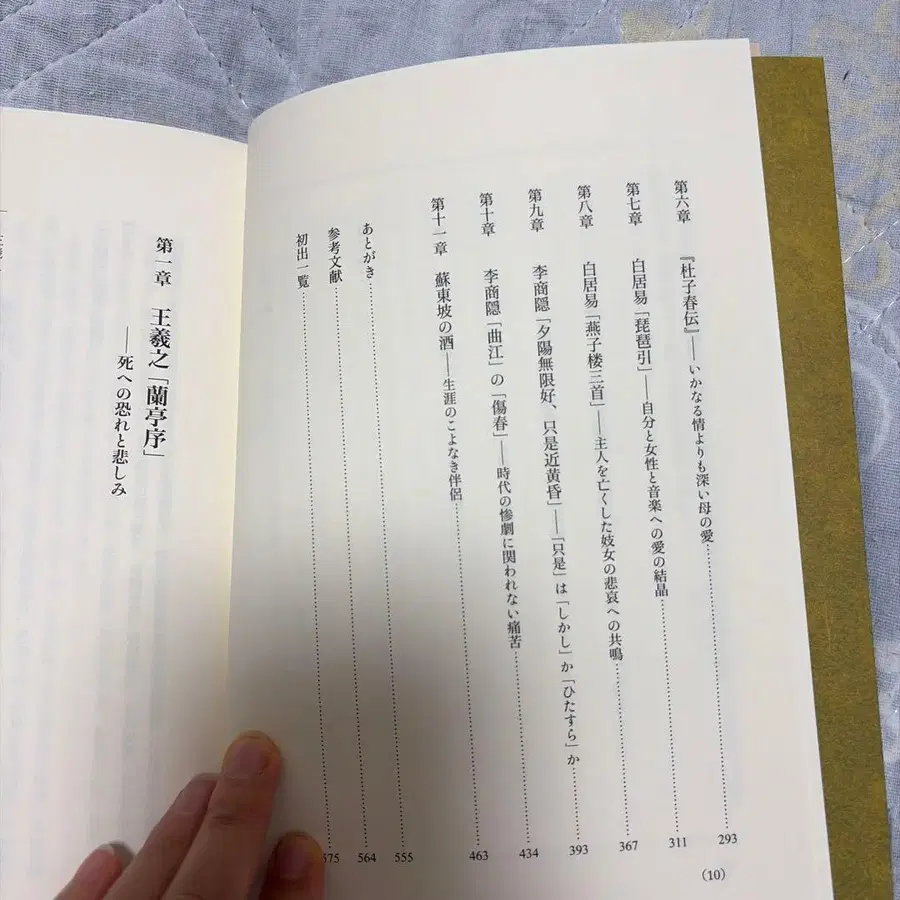 第六章 『杜子春伝』――いかなる情よりも深い母の愛……293
第七章 白居易「琵琶引」――自分と女性と音楽への愛の結晶……311
第八章 白居易「燕子楼三首」――主人を亡くした妓女の悲哀への共鳴……367
第九章 李商隠「夕陽無限好、只是近黄昏」――「只是」は「しかし」か「ひたすら」か……393
第十章 李商隠「曲江」の「傷春」――時代の惨劇に関われない痛苦……434
第十一章 蘇東坡の酒――生涯のこよなき伴侶……463
あとがき……555
参考文献……564
初出一覧……575
(10)
第一章 王羲之「蘭亭序」
――死への恐れと悲しみ